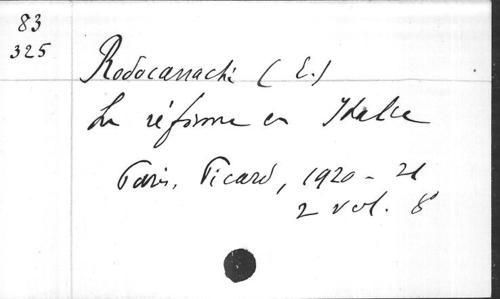 83
325
Rodocanachi (E.)
La réforme en Italie
Paris, Picard, 1920-21
2 vol. 8°